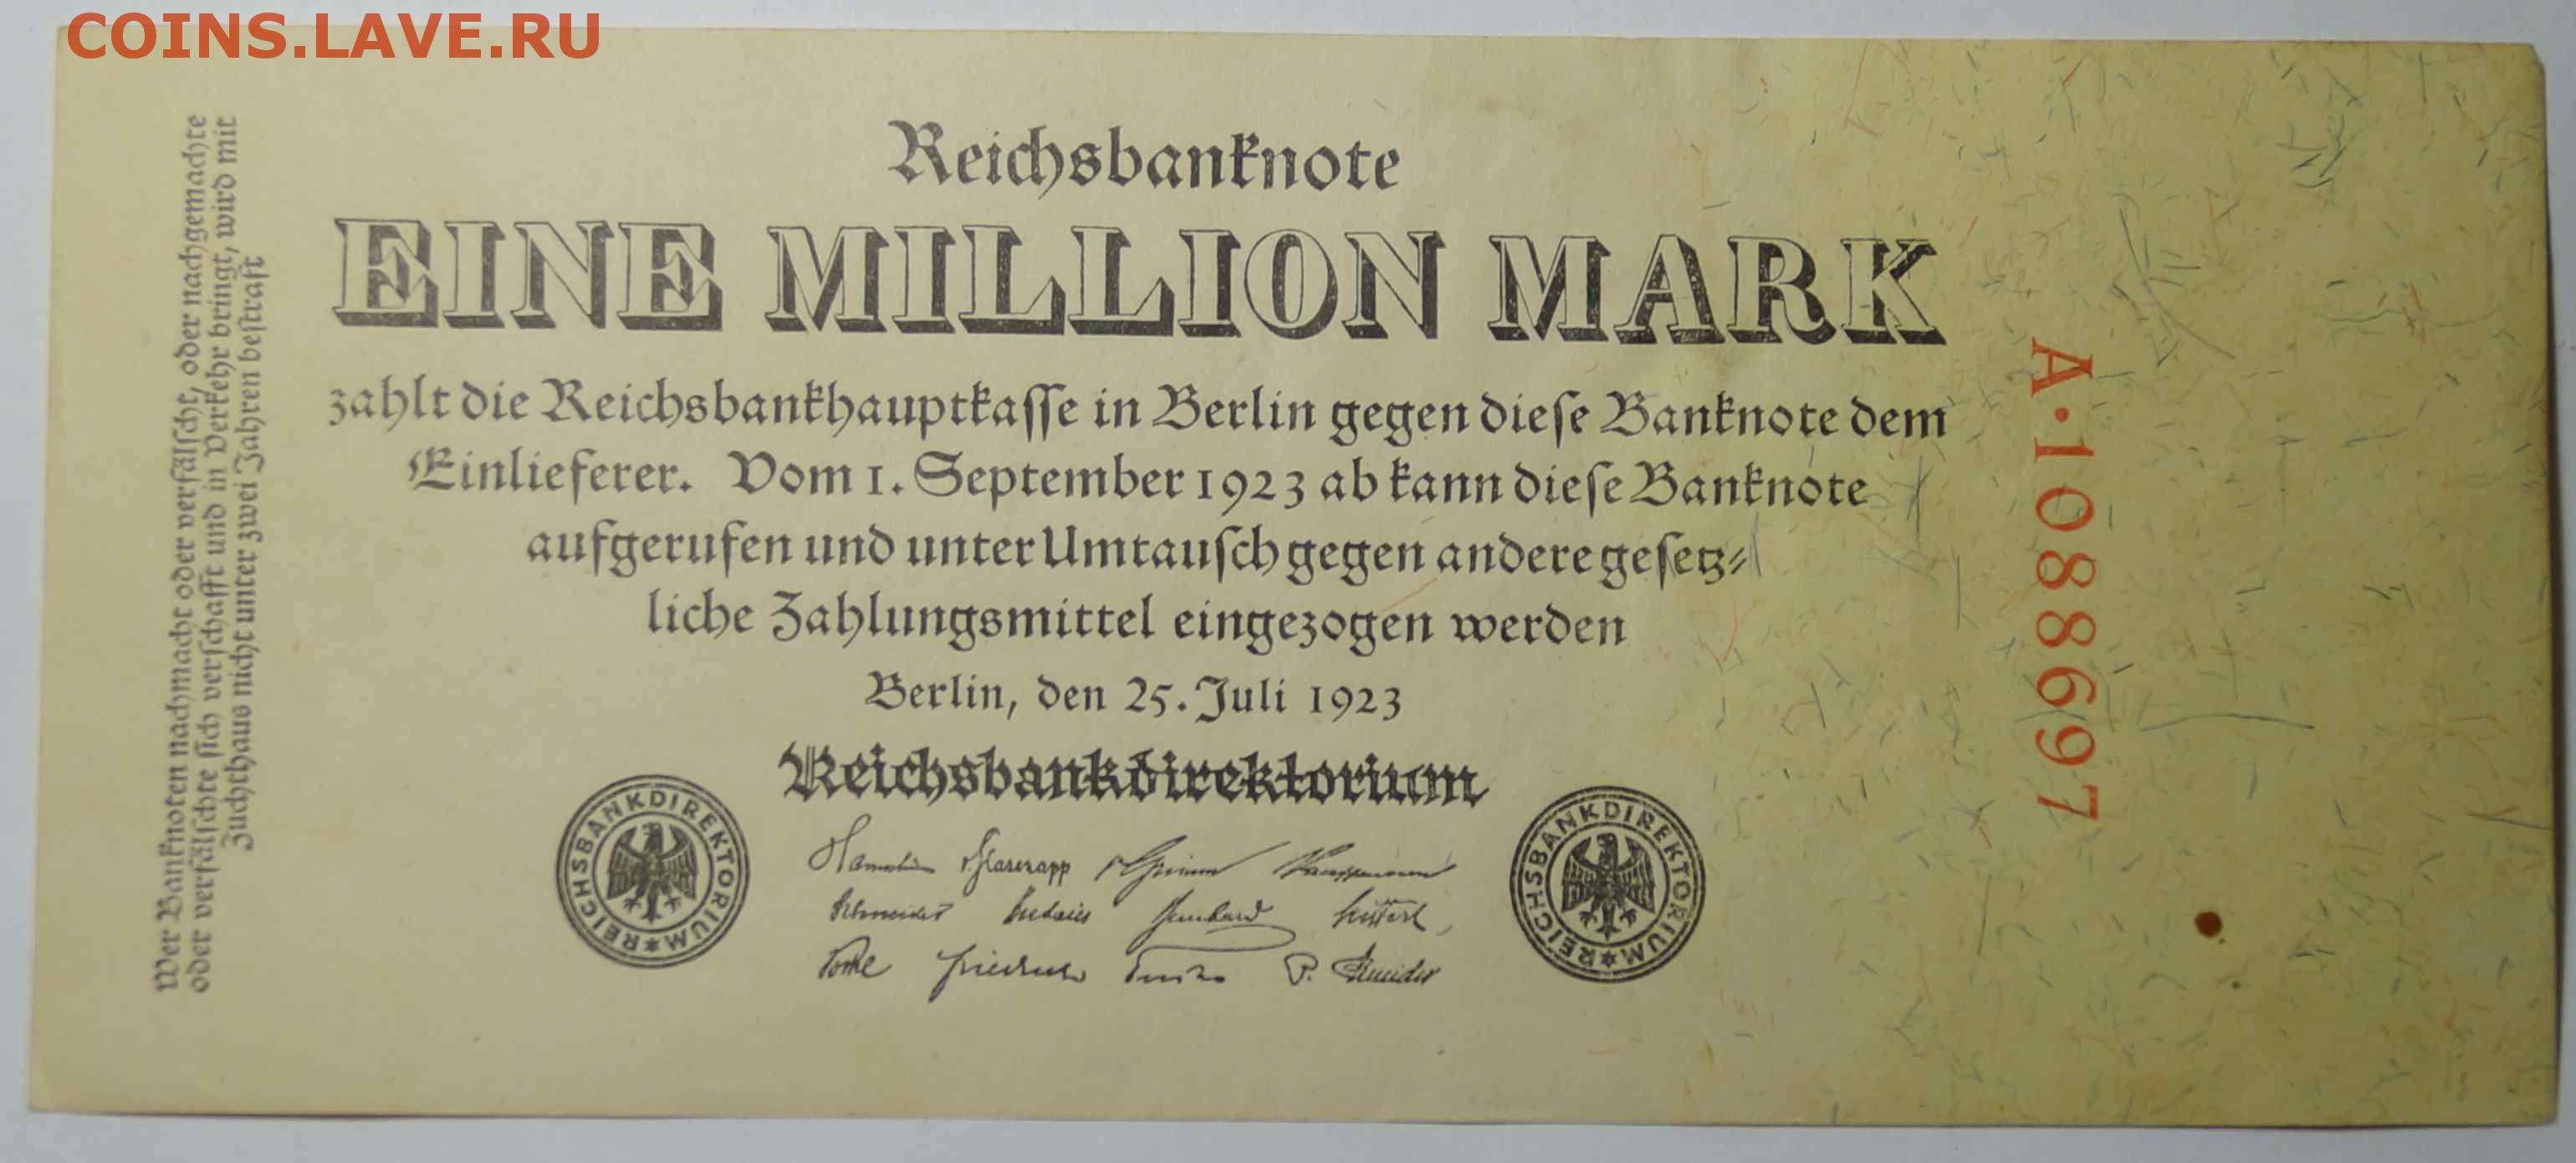 COINS.LAVE.RU
Reichsbanknote
EINE MILLION MARK
zahlt die Reichsbankhauptkasse in Berlin gegen diese Banknote dem
Einlieferer. Vom 1. September 1923 ab kann diese Banknote
aufgerufen und unter Umtausch gegen andere gesetz=
liche Zahlungsmittel eingezogen werden
Berlin, den 25. Juli 1923
Reichsbankdirektorium
v. Glasenapp v. Grimm Kauffmann
Schneider Budczies Bernhard Seiffert
Vocke Friedrich Fuchs P. Schneider
REICHSBANKDIREKTORIUM
REICHSBANKDIREKTORIUM
Wer Banknoten nachmacht oder verfälscht, oder nachgemachte
oder verfälschte sich verschafft und in Verkehr bringt, wird mit
Zuchthaus nicht unter zwei Jahren bestraft
A·1088697